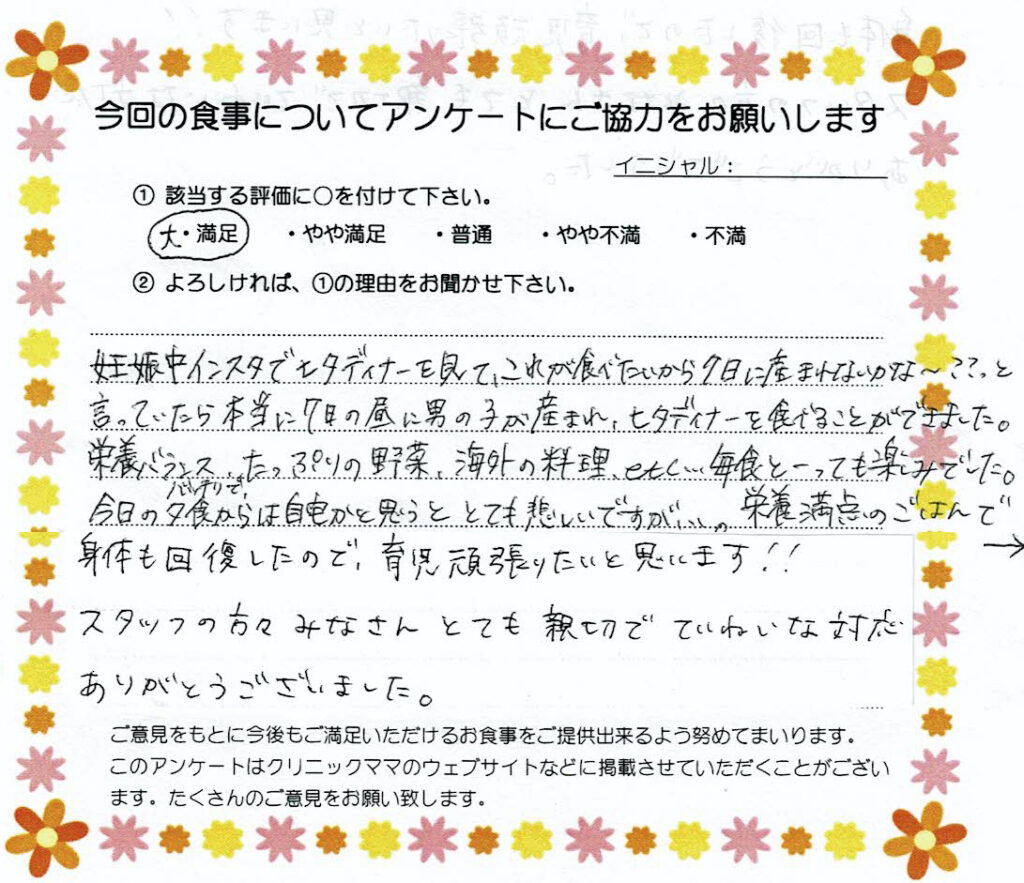 今回の食事についてアンケートにご協力をお願いします
イニシャル：
① 該当する評価に○を付けて下さい。
大・満足 ・やや満足 ・普通 ・やや不満 ・不満
② よろしければ、①の理由をお聞かせ下さい。
妊娠中インスタで七夕ディナーを見て、これが食べたいから7日に産まれないかな〜??と
言っていたら本当に7日の昼に男の子が産まれ、七夕ディナーを食べることができました。
栄養バランスバッチリで、たっぷりの野菜、海外の料理、etc… 毎食とーっても楽しみでした。
今日の夕食からは自宅かと思うととても悲しいですが…。栄養満点のごはんで
身体も回復したので、育児頑張りたいと思います!!
スタッフの方々みなさんとても親切でていねいな対応
ありがとうございました。
ご意見をもとに今後もご満足いただけるお食事をご提供出来るよう努めてまいります。
このアンケートはクリニックママのウェブサイトなどに掲載させていただくことがござい
ます。たくさんのご意見をお願い致します。